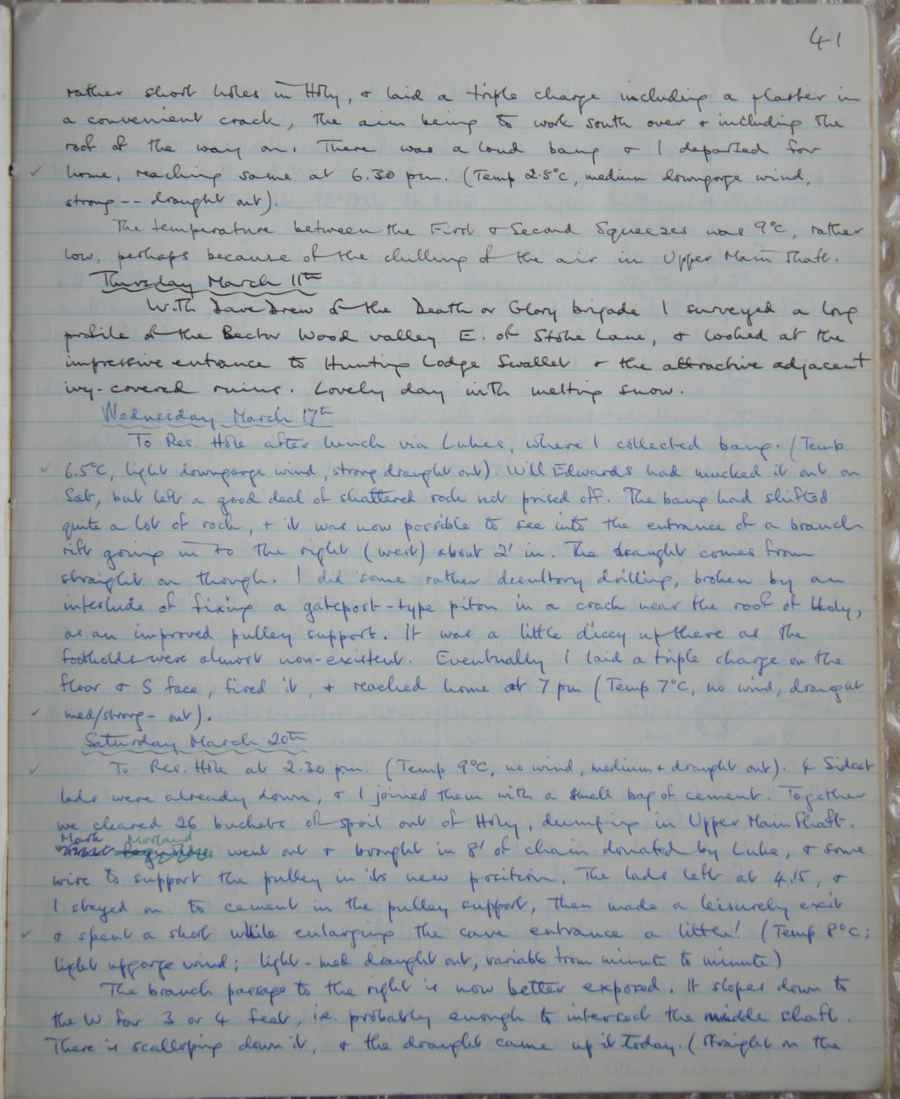 41
rather short holes in Holy, & laid a triple charge including a plaster in
a convenient crack, the aim being to work south over & including the
roof of the way on. There was a loud bang & I departed for
✓ home, reaching same at 6.30 pm. (Temp 2.5°C, medium downgorge wind,
strong -- draught out).
The temperature between the First & Second Squeezes was 9°C, rather
low, perhaps because of the chilling of the air in Upper Main Shaft.
Thursday March 11th
With Dave Drew of the Death or Glory brigade I surveyed a long
profile of the Bector Wood valley E. of Stoke Lane, & looked at the
impressive entrance to Hunting Lodge Swallet & the attractive adjacent
ivy-covered ruins. Lovely day with melting snow.
Wednesday March 17th
To Res. Hole after lunch via Lukes, where I collected bang. (Temp
✓ 6.5°C, light downgorge wind, strong draught out). Will Edwards had mucked it out on
Sat, but left a good deal of shattered rock not prised off. The bang had shifted
quite a lot of rock, & it was now possible to see into the entrance of a branch
rift going in to the right (west) about 2' in. The draught comes from
straight on though. I did some rather desultory drilling, broken by an
interlude of fixing a gatepost-type piton in a crack near the roof of Holy,
as an improved pulley support. It was a little dicey up there as the
footholds were almost non-existent. Eventually I laid a triple charge on the
floor & S face, fired it, & reached home at 7 pm (Temp 7°C, no wind, draught
✓ med/strong - out).
Saturday March 20th
✓ To Res. Hole at 2.30 pm. (Temp 9°C, no wind, medium + draught out). 4 Sidcot
lads were already down, & I joined them with a small bag of cement. Together
we cleared 26 buckets of spoil out of Holy, dumping in Upper Main Shaft.
Mark
went out & brought in 8' of chain donated by Luke, & some
wire to support the pulley in its new position. The lads left at 4.15, &
I stayed on to cement in the pulley support, then made a leisurely exit
✓ & spent a short while enlarging the cave entrance a little! (Temp 8°C;
light upgorge wind; light-med draught out, variable from minute to minute)
The branch passage to the right is now better exposed. It slopes down to
the W for 3 or 4 feet, i.e. probably enough to intersect the middle shaft.
There is scalloping down it, & the draught came up it today. (Straight on the